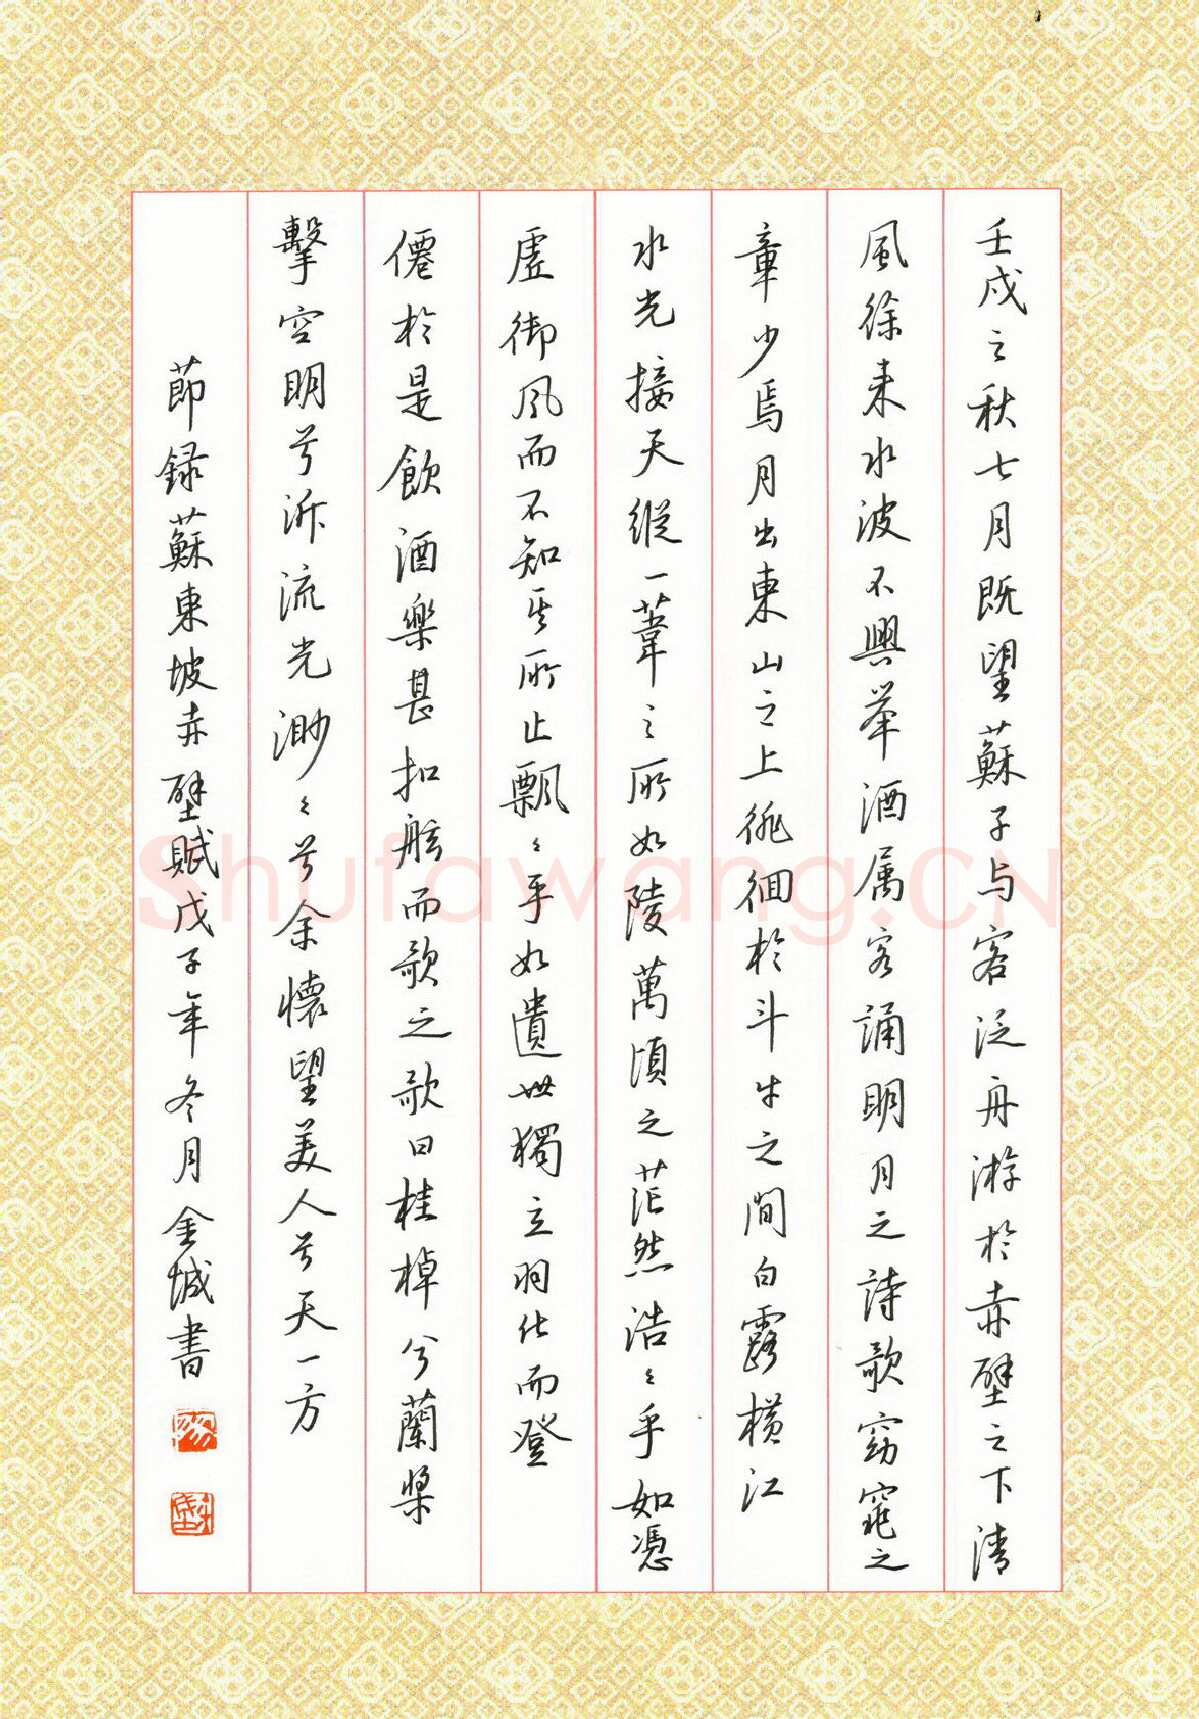 壬戌之秋七月既望蘇子与客泛舟游於赤壁之下清
風徐来水波不興举酒属客誦明月之詩歌窈窕之
章少焉月出東山之上徘徊於斗牛之間白露横江
水光接天縱一葦之所如陵萬頃之茫然浩〻乎如憑
虛御风而不知其所止飄〻乎如遺世獨立羽化而登
僊於是飲酒樂甚扣舷而歌之歌曰桂棹兮蘭槳
擊空明兮泝流光渺〻兮余懷望美人兮天一方
節録蘇東坡赤壁賦戊子年冬月金城書
Shufawang.CN